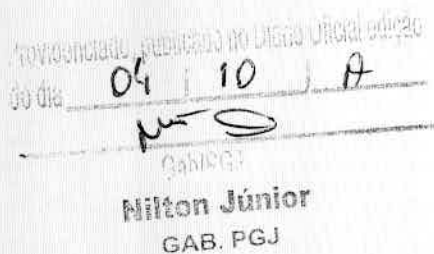 Providenciado, publicado no Diário Oficial edição
do dia 04 / 10 /
Gab/PGJ
Nilton Júnior
GAB. PGJ